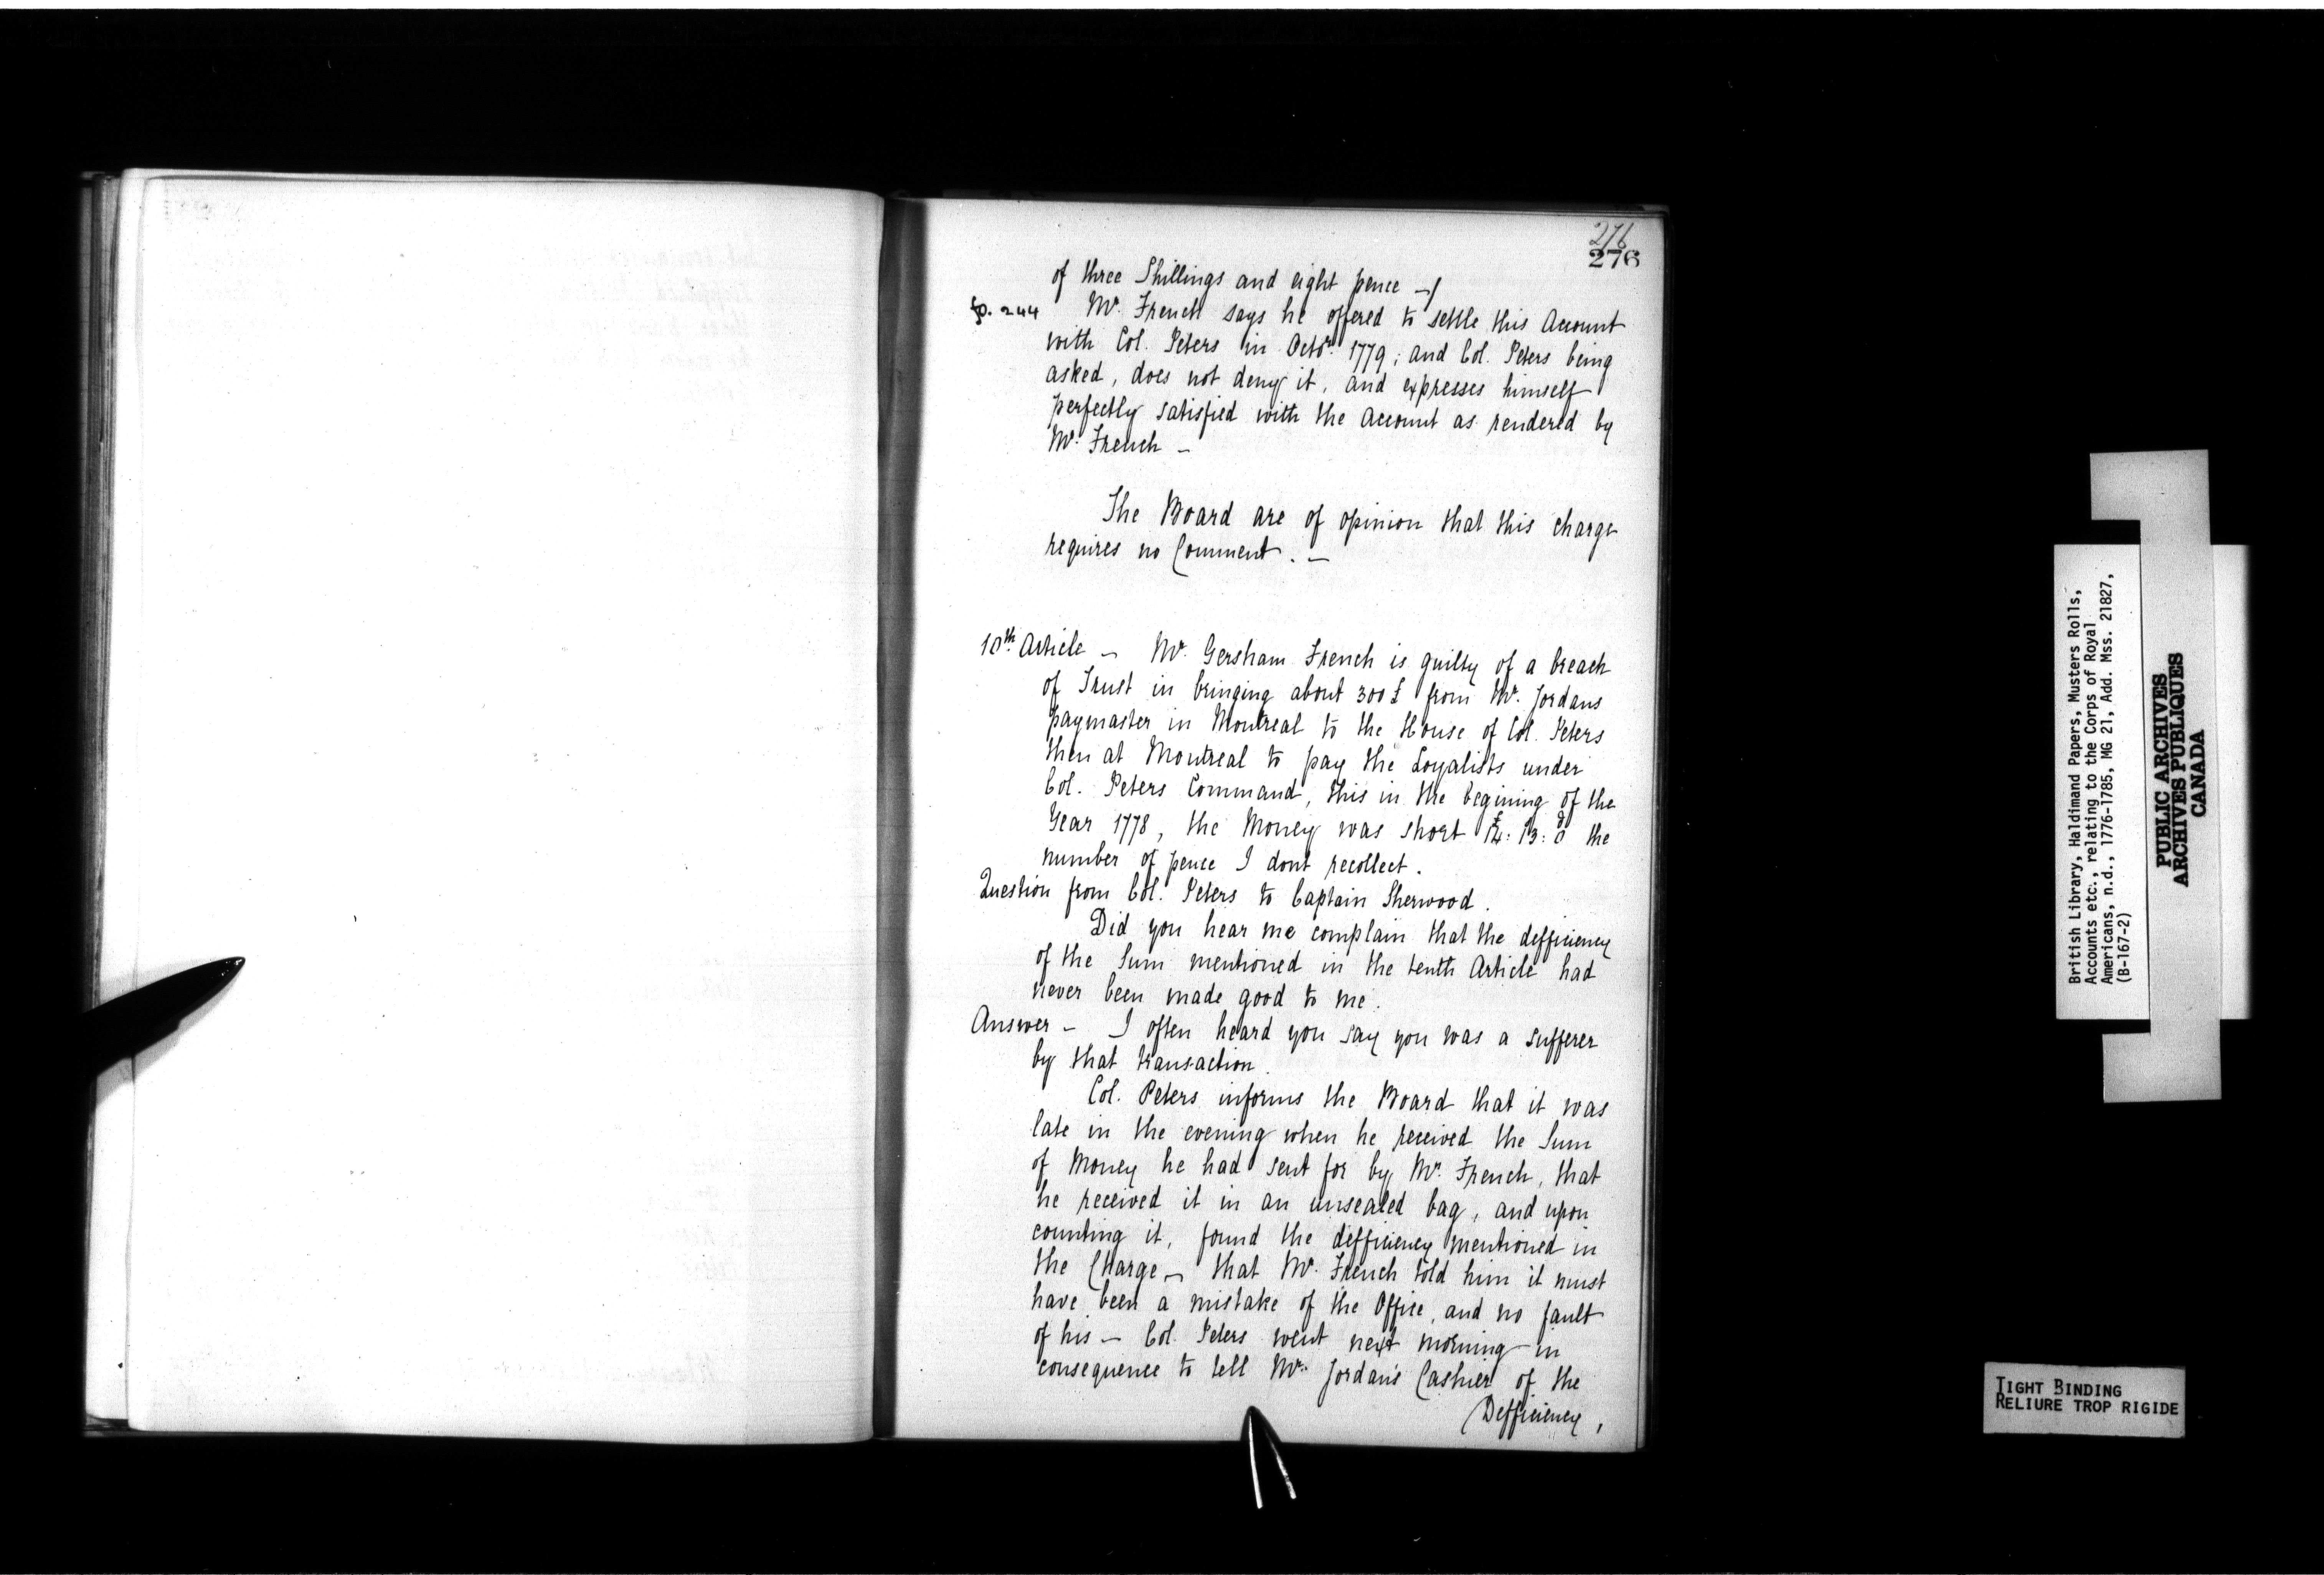 276
276
of three Shillings and eight pence —/
fo. 244 Mr. French says he offered to settle this Account
with Col. Peters in Octbr. 1779, and Col. Peters being
asked, does not deny it, and expresses himself
perfectly satisfied with the Account as rendered by
Mr. French —
The Board are of opinion that this charge
requires no Comment. —
10th Article — Mr. Gersham French is guilty of a breach
of Trust in bringing about 300£ from Mr. Jordans
paymaster in Montreal to the House of Col. Peters
then at Montreal to pay the Loyalists under
Col. Peters Command, this in the begining of the
Year 1778, the Money was short £14: 13: 0d the
number of pence I dont recollect.
Question from Col. Peters to Captain Sherwood.
Did you hear me complain that the defficiency
of the Sum mentioned in the tenth Article had
never been made good to me.
Answer — I often heard you say you was a sufferer
by that transaction.
Col. Peters informs the Board that it was
late in the evening when he received the Sum
of Money he had sent for by Mr. French, that
he received it in an unsealed bag, and upon
counting it, found the defficiency mentioned in
the Charge — that Mr. French told him it must
have been a mistake of the Office, and no fault
of his — Col. Peters went next morning in
consequence to tell Mr. Jordan's Cashier of the
Defficiency,
British Library, Haldimand Papers, Musters Rolls,
Accounts etc., relating to the Corps of Royal
Americans, n.d., 1776-1785, MG 21, Add. Mss. 21827,
(B-167-2)
PUBLIC ARCHIVES
ARCHIVES PUBLIQUES
CANADA
TIGHT BINDING
RELIURE TROP RIGIDE